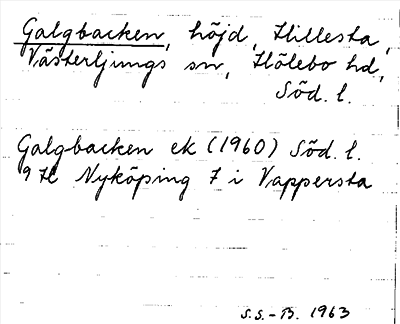 Galgbacken, höjd, Hillesta,
Västerljungs sn, Hölebo hd,
Söd. l.
Galgbacken ek (1960) Söd. l.
9 H Nyköping 7 i Vappersta
S.S.-B. 1963